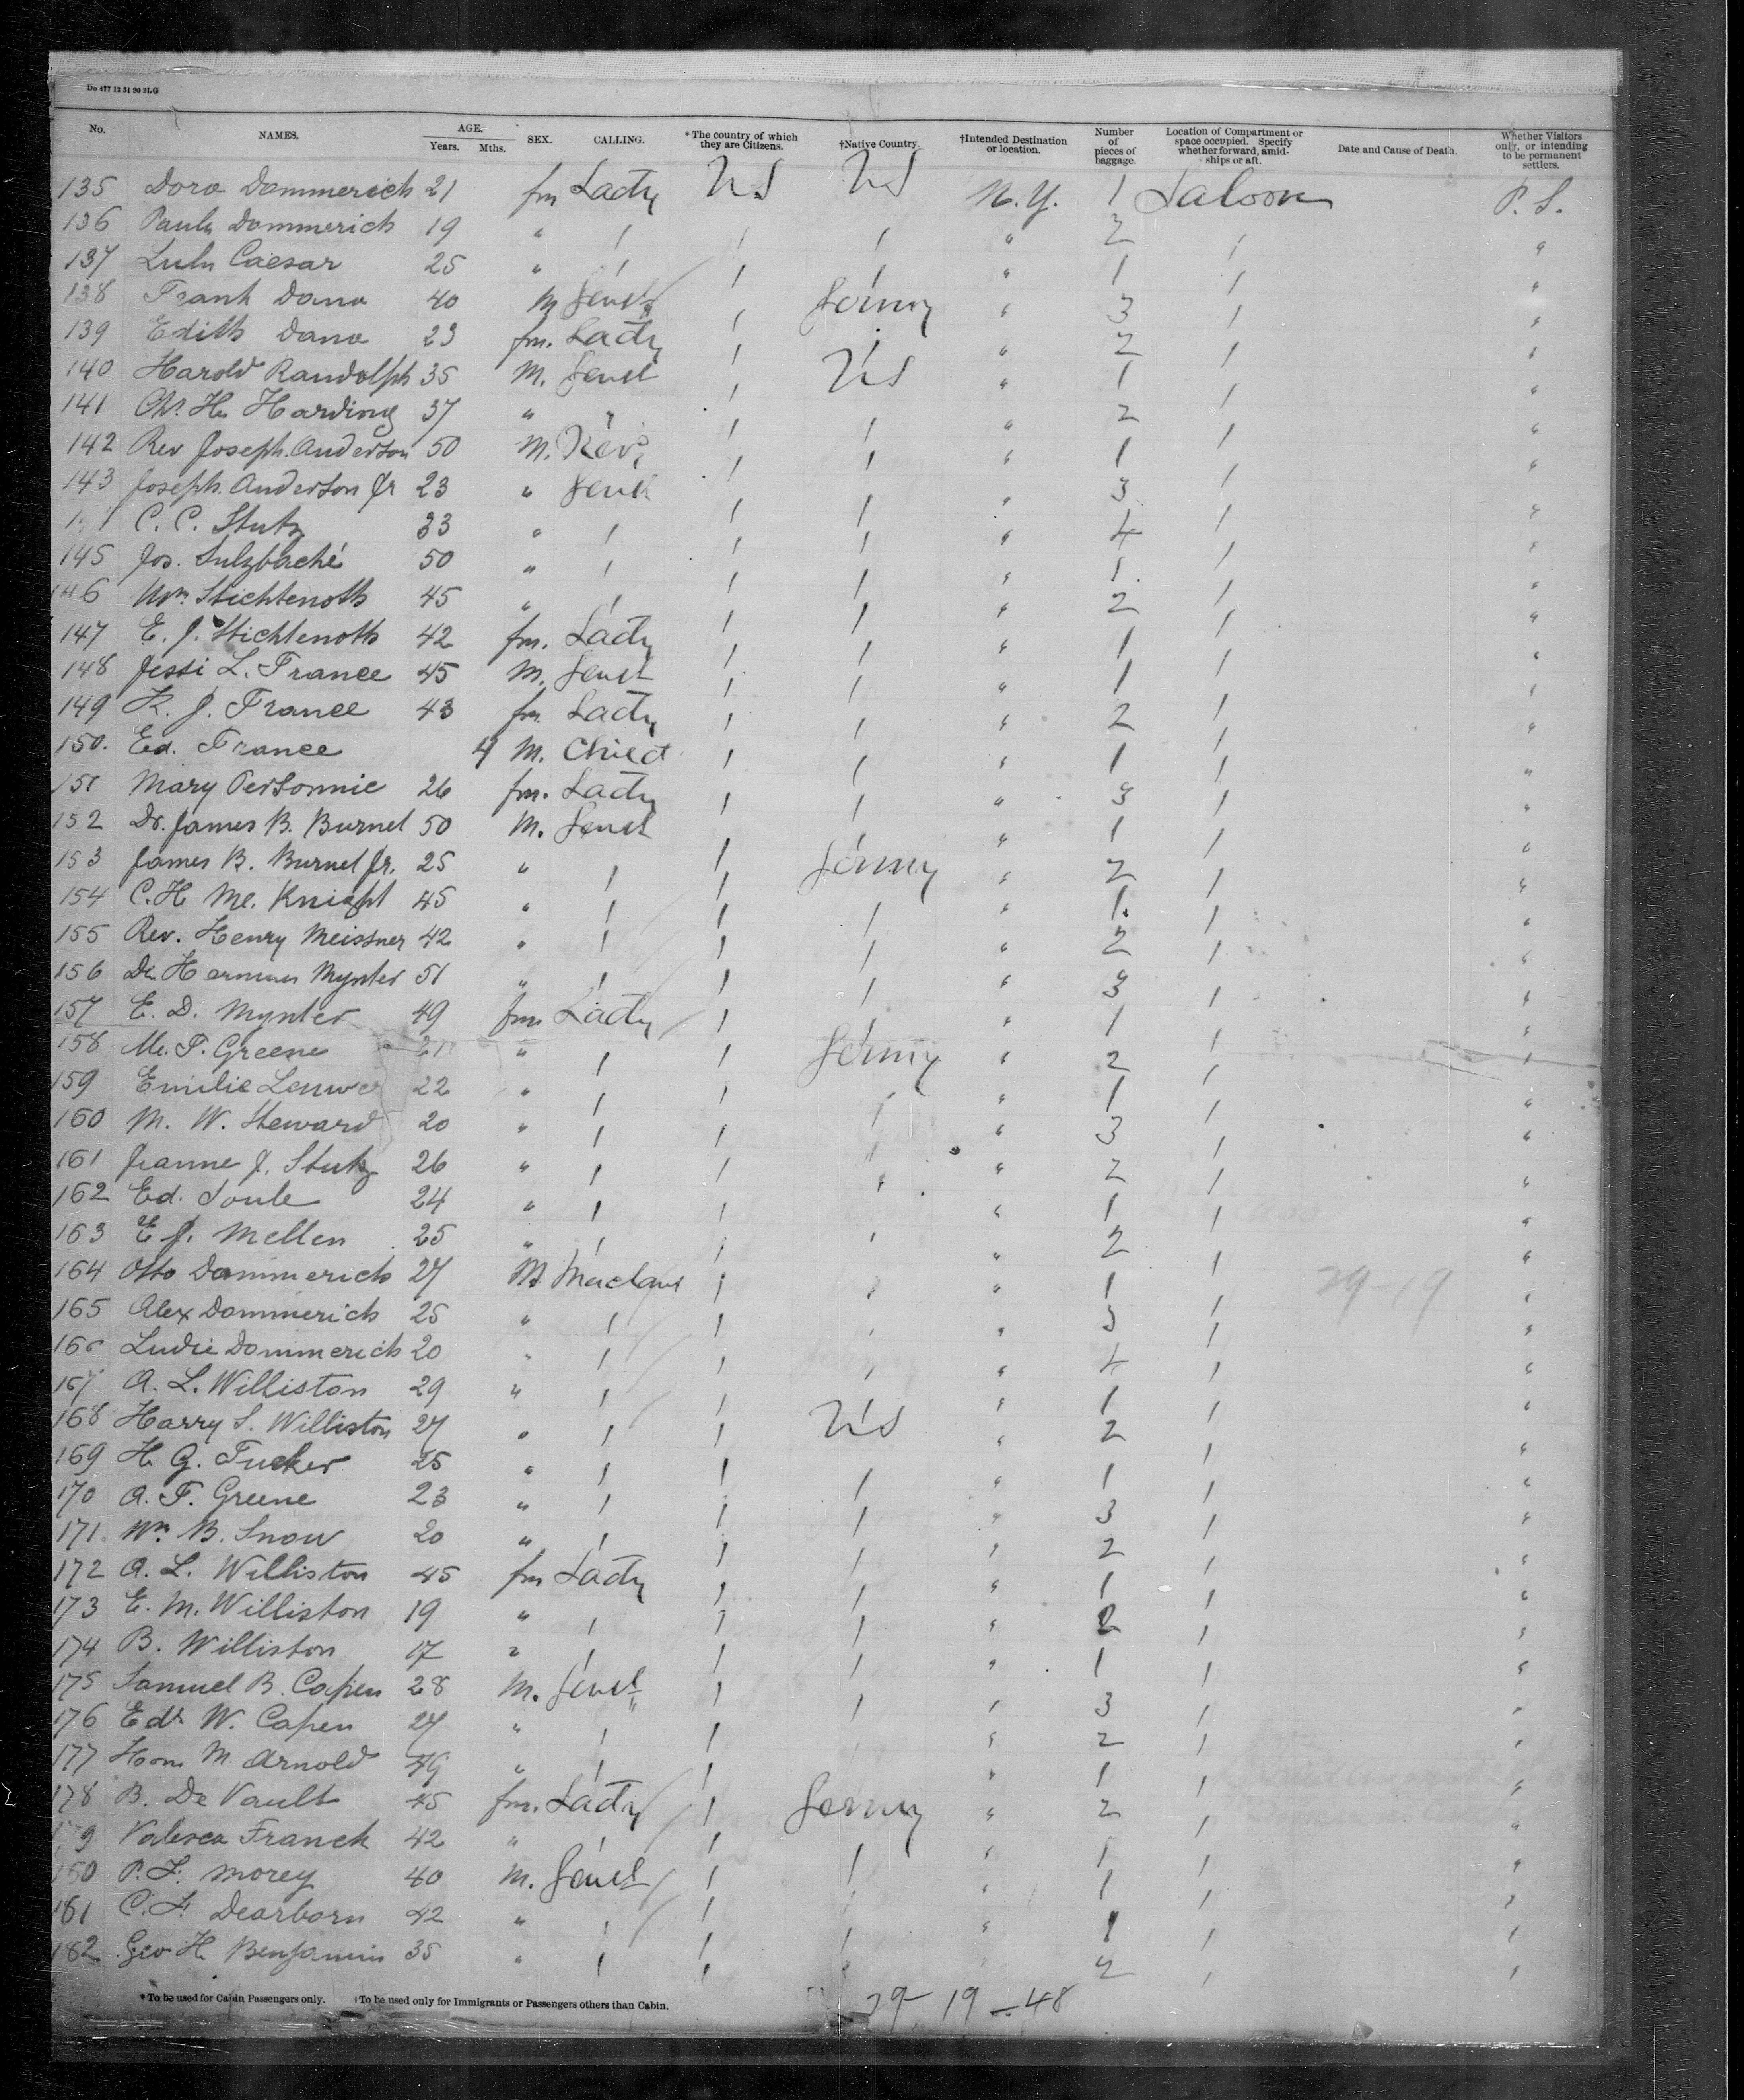 Do 477 12 31 90 2LG
No. NAMES. AGE. Years. Mths. SEX. CALLING. * The country of which they are Citizens. †Native Country. †Intended Destination or location. Number of pieces of baggage. Location of Compartment or space occupied. Specify whether forward, amidships or aft. Date and Cause of Death. Whether Visitors only, or intending to be permanent settlers.
135 Dora Dommerich 21 fm Lady US US N.Y. 1 Saloon P. S.
136 Paula Dommerich 19 " / / / " 2 / "
137 Lulu Caesar 25 " / / / " 1 / "
138 Frank Dana 40 M Gent / Germy " 3 / "
139 Edith Dana 23 fm. Lady / / " 2 / "
140 Harold Randolph 35 M. Gent / US " 1 / "
141 Ch. H. Harding 37 " " / / " 2 / "
142 Rev Joseph. Anderson 50 M. Rev. / / " 1 / "
143 Joseph. Anderson Jr 23 " Gent / / " 3 / "
C. C. Stutz 33 " / / / " 4 / "
145 Jos. Sulzbaché 50 " / / / " 1 / "
146 Wm. Stichtenoth 45 " / / / " 2 / "
147 E. J. Stichtenoth 42 fm. Lady / / " 1 / "
148 Jessi L. France 45 M. Gent / / " 1 / "
149 K. J. France 43 fm Lady / / " 2 / "
150. Ed. France 4 M. Child / / " 1 / "
151 Mary Personnie 26 fm. Lady / / " 3 / "
152 Dr. James B. Burnet 50 M. Gent / / " 1 / "
153 James B. Burnet Jr. 25 " / / Germy " 2 / "
154 C. H Mc. Knight 45 " / / / " 1 / "
155 Rev. Henry Meissner 42 " / / / " 2 / "
156 Dr. Herman Mynter 51 " / / / " 3 / "
157 E. D. Mynter 49 fm Lady / / " 1 / "
158 M. P. Greene 21 " / / Germy " 2 / "
159 Emilie 22 " / / / " 1 / "
160 M. W. Steward 20 " / / / " 3 / "
161 Jeanne J. Stutz 26 " / / " " 2 / "
162 Ed. Soule 24 " / / " 1 / "
163 E J. Mellen 25 " / / / " 2 / "
164 Otto Dommerich 27 M / / " 1 / 29-19 "
165 Alex Dommerich 25 " / / / " 3 / "
166 Ludie Dommerich 20 " / / / " 4 / "
167 A. L. Williston 29 " / / " 1 / "
168 Harry S. Williston 27 " / / US " 2 / "
169 H. G. Tucker 25 " / / / " 1 / "
170 A. F. Greene 23 " / / / " 3 / "
171. Wm B. Snow 20 " / / / " 2 / "
172 A. L. Williston 45 fm Lady / / " 1 / "
173 E. M. Williston 19 " / / / " 2 / "
174 B. Williston 17 " / / / " 1 / "
175 Samuel B. Capen 28 M. Gent / / " 3 / "
176 Ed. W. Capen 27 " / / " 2 / "
177 M. Arnold 49 " / / " 1 / "
178 B. De Vault 45 fm. Lady / Germy " 2 / "
Valesca Franck 42 " / / / " 1 / "
180 P. F. Morey 40 M. Gent / / " 1 / "
181 C. F. Dearborn 42 " / / / " 1 / "
182 Geo H. Benjamin 35 " / / / 2 / "
* To be used for Cabin Passengers only. †To be used only for Immigrants or Passengers others than Cabin.
29-19-48